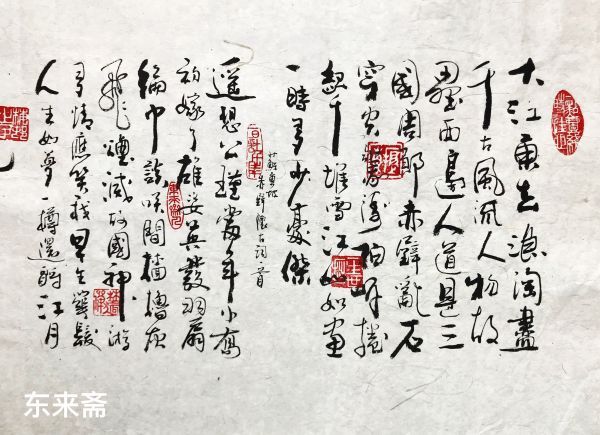 大江東去浪淘盡
千古風流人物故
壘西邊人道是三
國周郎赤壁亂石
穿空驚濤拍岸捲
起千堆雪江山如畫
一時多少豪傑
蘇東坡
赤壁懷古詞一首
遥想公瑾當年小喬
初嫁了雄姿英發羽扇
綸巾談笑間檣櫓灰
飛煙滅故國神游
多情應笑我早生華髮
人生如夢一樽還酹江月
东来斋